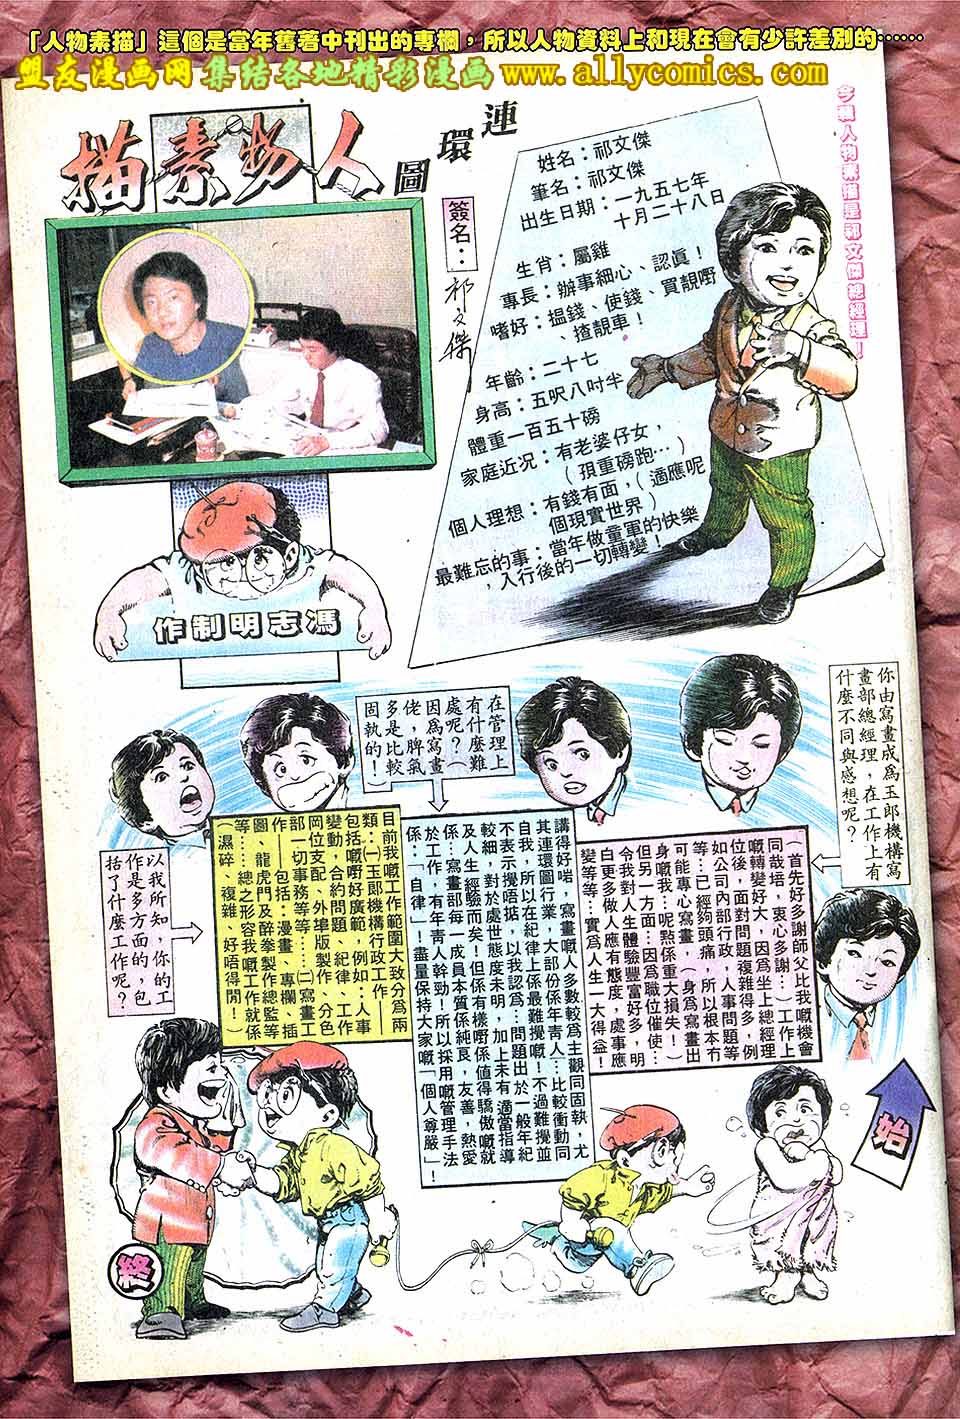 「人物素描」這個是當年舊著中刊出的專欄，所以人物資料上和現在會有少許差別的⋯⋯
盟友漫画网 集结各地精彩漫画 www.allycomics.com
連環圖
人物素描
今輯人物素描是祁文傑總經理！
簽名：
祁文傑
姓名：祁文傑
筆名：祁文傑
出生日期：一九五七年
十月二十八日
生肖：屬雞
專長：辦事細心、認眞！
嗜好：搵錢、使錢、買靚嘢
、揸靚車！
年齡：二十七
身高：五呎八吋半
體重一百五十磅
家庭近况：有老婆仔女，
（孭重磅跑…）
個人理想：有錢有面，（適應呢
個現實世界）
最難忘的事：當年做童軍的快樂
，入行後的一切轉變！
馮志明制作
始
你由寫畫成爲玉郎機構寫
畫部總經理，在工作上有
什麼不同與感想呢？
（首先好多謝師父比我嘅機會
同哉培，衷心多謝…）工作上
嘅轉變好大，因爲坐上總經理
位後，面對問題複雜得多，例
如公司內部行政，人事問題等
等…已經夠頭痛，所以根本冇
可能專心寫畫，（身爲寫畫出
身嘅我…呢㸃係重大損失！）
但另一方面…因爲職位催使…
令我對人生體驗豐富好多，明
白更多做人應有態度，處事應
變等等…實爲人生一大得益！
在管理上
有什麼難
處呢？（
因爲寫畫
佬，脾氣
多是比較
固執的！）
講得好啱，寫畫嘅人多數較爲主觀同固執，尤
其連環圖行業，大部份係年靑人…比較衝動同
自我，所以在紀律上係最難攪嘅！不過難攪並
不表示攪唔掂，以我認爲…問題出於一般年紀
較細，對於處世態度未明，加上未有適當指導
及人生經驗而矣！但係有樣嘢係值得驕傲嘅就
係…寫畫部每一成員本質係純良，友善，熱愛
於工作，有年靑人幹勁！所以採用嘅管理手法
係「自律」——盡量保持大家嘅「個人尊嚴」！
以我所知，你的工
作是多方面的，包
括了什麼工作呢？
目前我嘅工作範圍大致分爲兩
類：㈠玉郎機構行政工作——
包括嘅嘢好廣範，例如：人事
變動，合約問題、紀律、工作
岡位支配、外埠版製作、分色
部一切事務等等……㈡寫畫工
作——包括：漫畫、專欄、插
圖、龍虎門及醉拳製作總監等
等……總之形容我嘅工作就係
（濕碎、複雜、好唔得閒！）
終